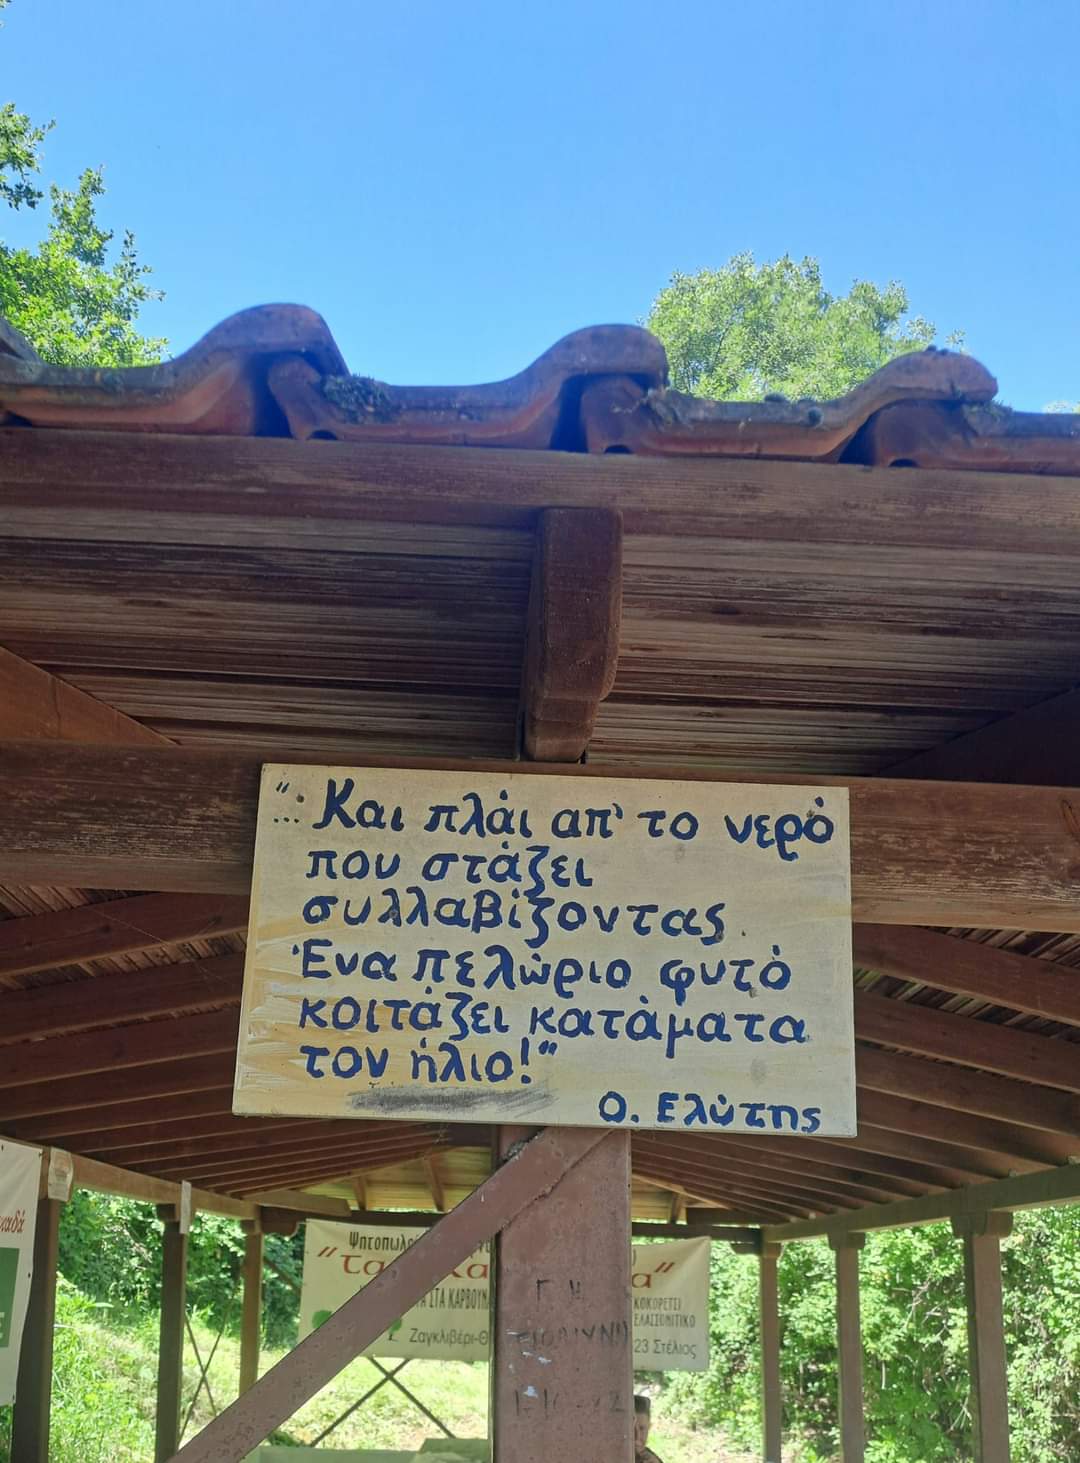 "... Και πλάι απ' το νερό
που στάζει
συλλαβίζοντας
Ένα πελώριο φυτό
κοιτάζει κατάματα
τον ήλιο!"
Ο. Ελύτης
"Τα
α"
ΣΤΑ ΚΑΡΒΟΥΝΑ
ΚΟΚΟΡΕΤΣΙ
Ζαγκλιβέρι-Θ
23 Στέλιος